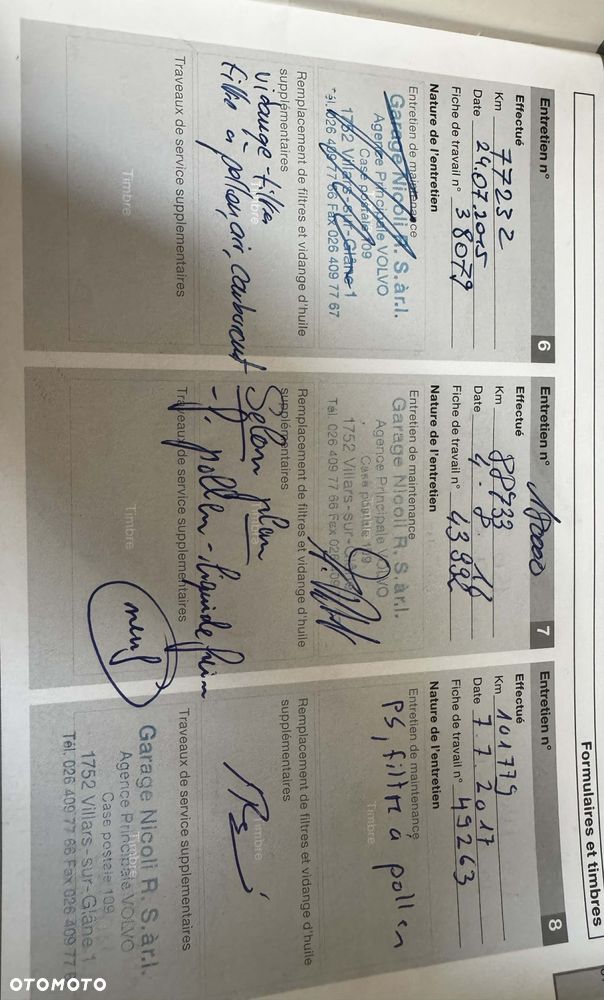 Formulaires et timbres
Entretien n°
6
Effectué
Km 77232
Date 29.07.2015
Fiche de travail n° 38079
Nature de l'entretien
Entretien de maintenance
Garage Nicoli R. S.à.r.l.
Agence Principale VOLVO
Case postale 109
1752 Villars-sur-Glâne 1
Tél. 026 409 77 66 Fax 026 409 77 67
Remplacement de filtres et vidange d'huile
supplémentaires
Timbre
Vidange-filtre
filtre a pollen, air, carburant
Travaux de service supplementaires
Timbre
180000
Entretien n°
7
Effectué
Km 88733
Date 4.8.16
Fiche de travail n° 43992
Nature de l'entretien
Entretien de maintenance
Garage Nicoli R. S.à.r.l.
Agence Principale VOLVO
Case postale 109
1752 Villars-sur-Glâne
Tél. 026 409 77 66 Fax 026 409
Remplacement de filtres et vidange d'huile
supplémentaires
Timbre
Selon plan
- F. pollen - liquide frein
Travaux de service supplémentaires
Timbre
Entretien n°
8
Effectué
Km 101779
Date 7.7.2017
Fiche de travail n° 49263
Nature de l'entretien
Entretien de maintenance
Timbre
PS, filtre a pollen
Remplacement de filtres et vidange d'huile
supplémentaires
Timbre
Travaux de service supplémentaires
Timbre
Garage Nicoli R. S.à.r.l.
Agence Principale VOLVO
Case postale 109
1752 Villars-sur-Glâne 1
Tél. 026 409 77 66 Fax 026 409 77 6
OTOMOTO